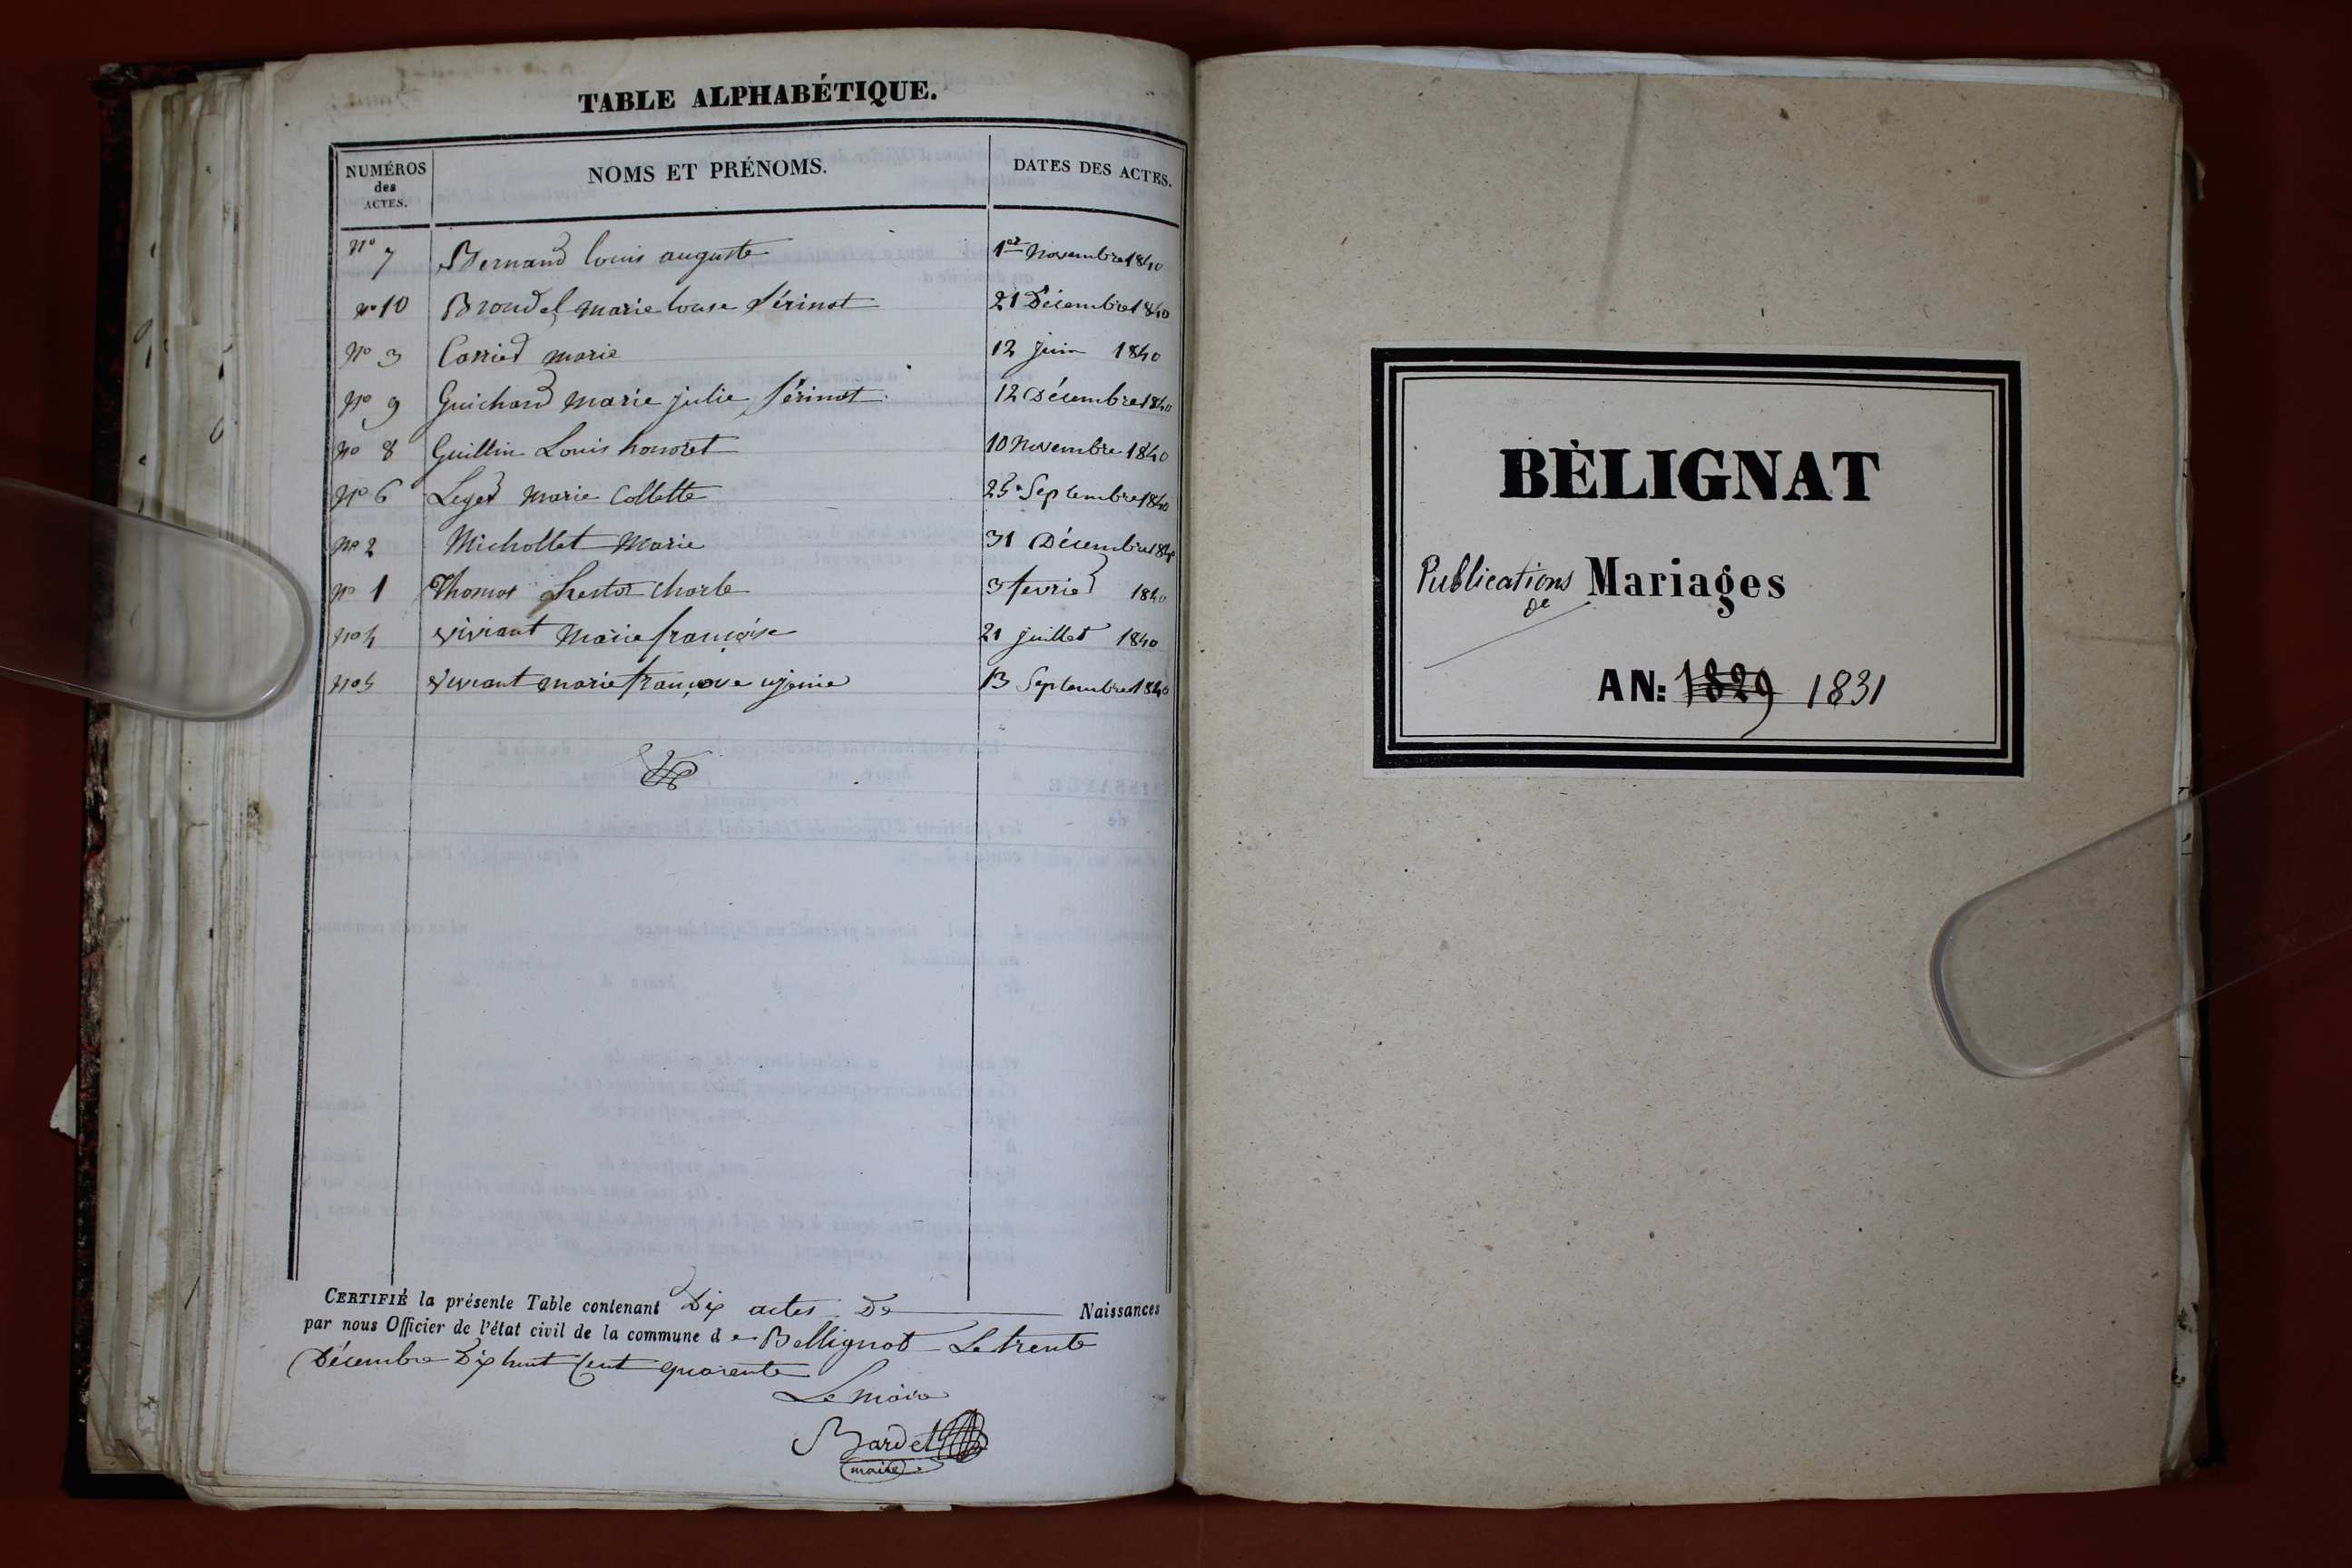 TABLE ALPHABÉTIQUE.
NUMÉROS des ACTES. NOMS ET PRÉNOMS. DATES DES ACTES.
No 7 Bernand louis auguste 1er Novembre 1840
No 10 Brondel marie louse Sérinot 21 Décembre 1840
No 3 marie 12 juin 1840
No 9 Guichard marie julie Sérinot 12 Décembre 1840
No 8 Guillin Louis honoret 10 Novembre 1840
No 6 Leger marie Collette 25 Septembre 1840
No 2 Michollet Marie 31 Décembre 1840
No 1 Thomas charle 3 fevrier 1840
No 4 viviant Marie françoise 21 juillet 1840
No 5 viviant marie françoise ugenie 13 Septembre 1840
CERTIFIÉ la présente Table contenant Dix actes De Naissances
par nous Officier de l'état civil de la commune de Bellignat Le trente
Décembre Dix huit Cent quarente
Le maire
Bardet
maire
BÈLIGNAT
Publications de Mariages
AN: 1829 1831